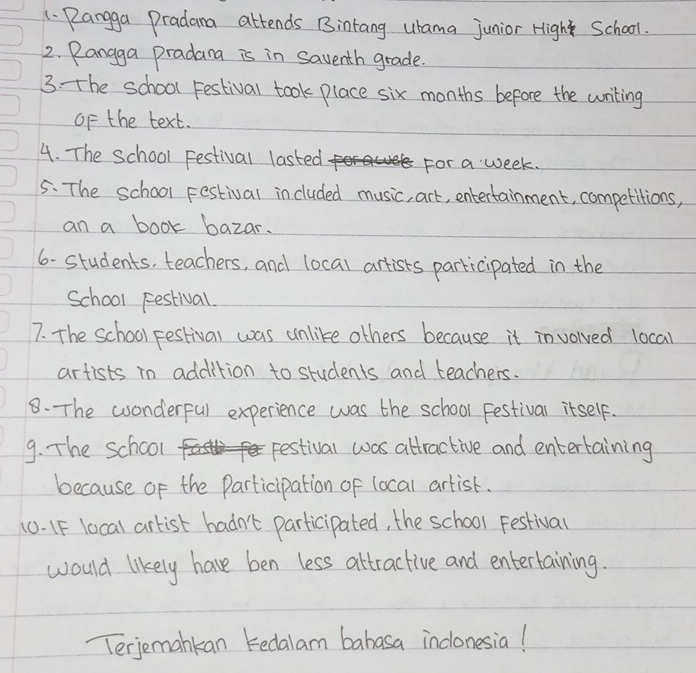 1. Rangga Pradana attends Bintang utama junior High School.
2. Rangga pradana is in Saventh grade.
3. The School Festival took place six months before the writing
OF the text.
4. The School Festival lasted for a week.
5. The School Festival included music, art, entertainment, competitions,
an a book bazar.
6. Students, teachers, and local artists participated in the
School Festival.
7. The school Festival was unlike others because it involved local
artists in addition to students and teachers.
8. The wonderful experience was the school Festival itself.
9. The School festival was attractive and entertaining
because OF the Participation OF local artist.
10. IF local artist hadn't participated, the school Festival
would likely have ben less attractive and entertaining.
Terjemahkan kedalam bahasa indonesia!